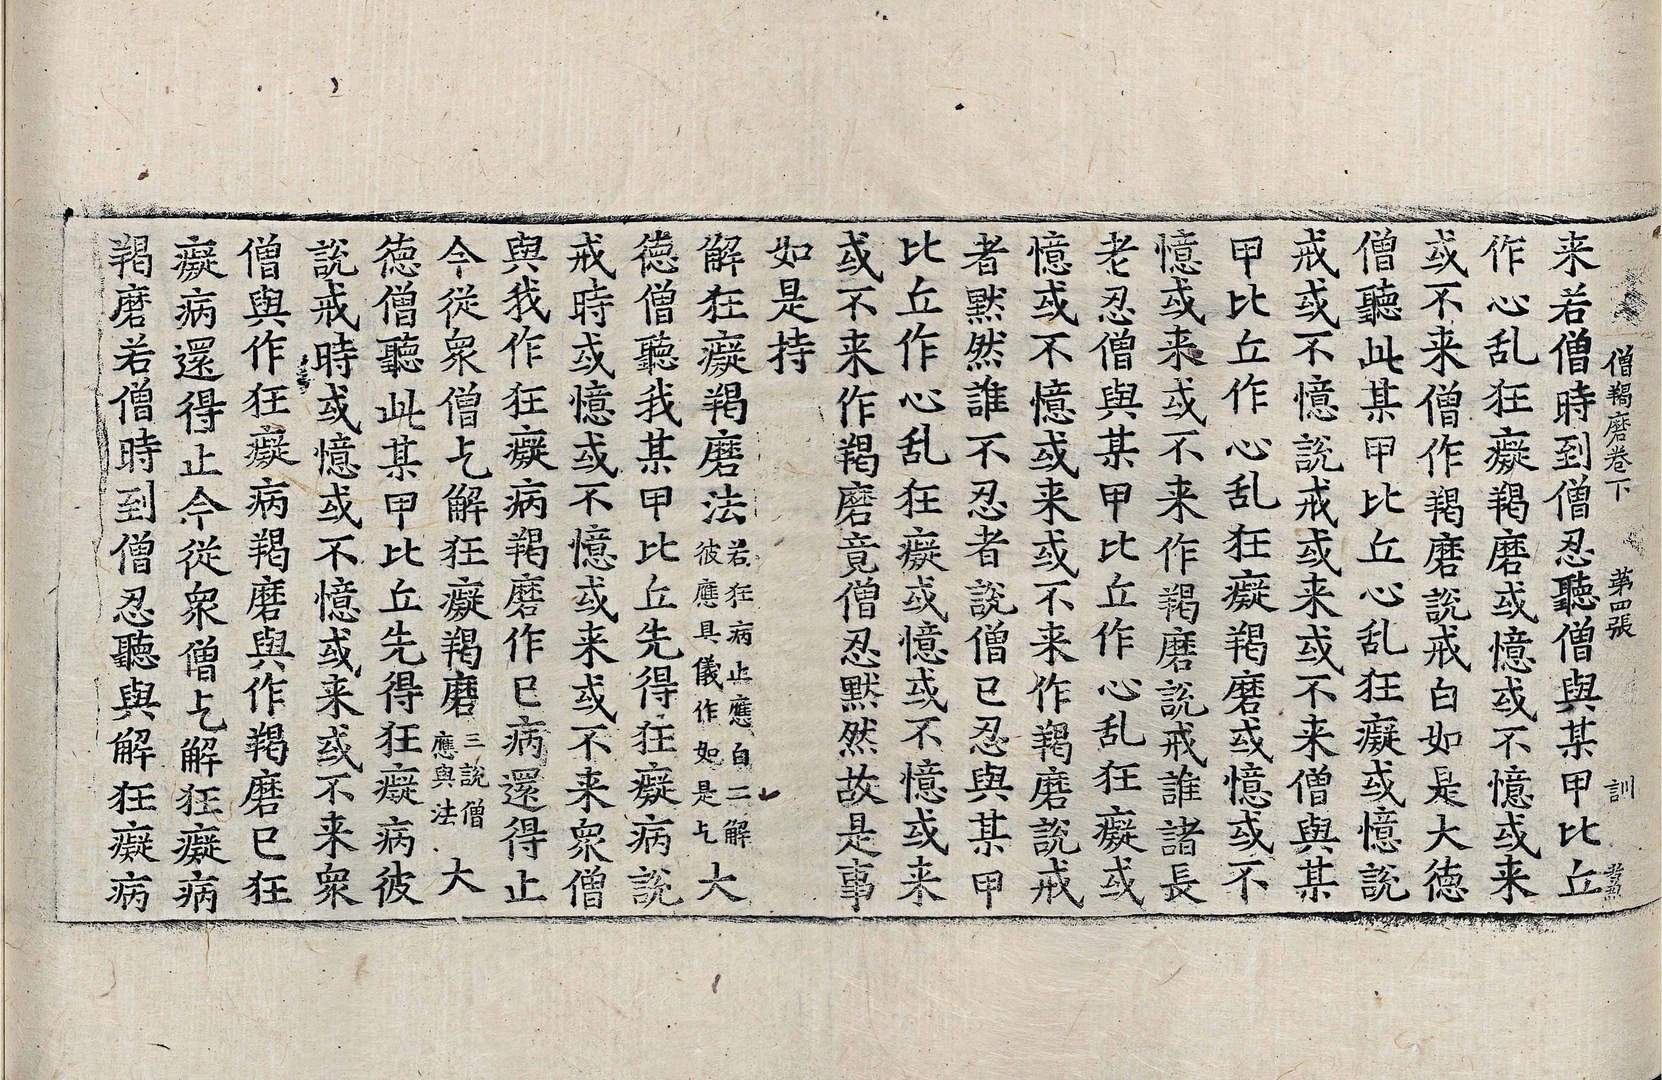 僧羯磨卷下 第四張 訓
来若僧時到僧忍聽僧與某甲比丘
作心乱狂癡羯磨或憶或不憶或来
或不来僧作羯磨説戒白如是大德
僧聽此某甲比丘心乱狂癡或憶説
戒或不憶説戒或来或不来僧與某
甲比丘作心乱狂癡羯磨或憶或不
憶或来或不来作羯磨説戒誰諸長
老忍僧與某甲比丘作心乱狂癡或
憶或不憶或来或不来作羯磨説戒
者黙然誰不忍者説僧已忍與某甲
比丘作心乱狂癡或憶或不憶或来
或不来作羯磨竟僧忍黙然故是事
如是持
解狂癡羯磨法若狂病止應白二解
彼應具儀作如是乞大
德僧聽我某甲比丘先得狂癡病説
戒時或憶或不憶或来或不来衆僧
與我作狂癡病羯磨作已病還得止
今從衆僧乞解狂癡羯磨三説僧
應與法大
德僧聽此某甲比丘先得狂癡病彼
説戒時或憶或不憶或来或不来衆
僧與作狂癡病羯磨與作羯磨已狂
癡病還得止今從衆僧乞解狂癡病
羯磨若僧時到僧忍聽與解狂癡病